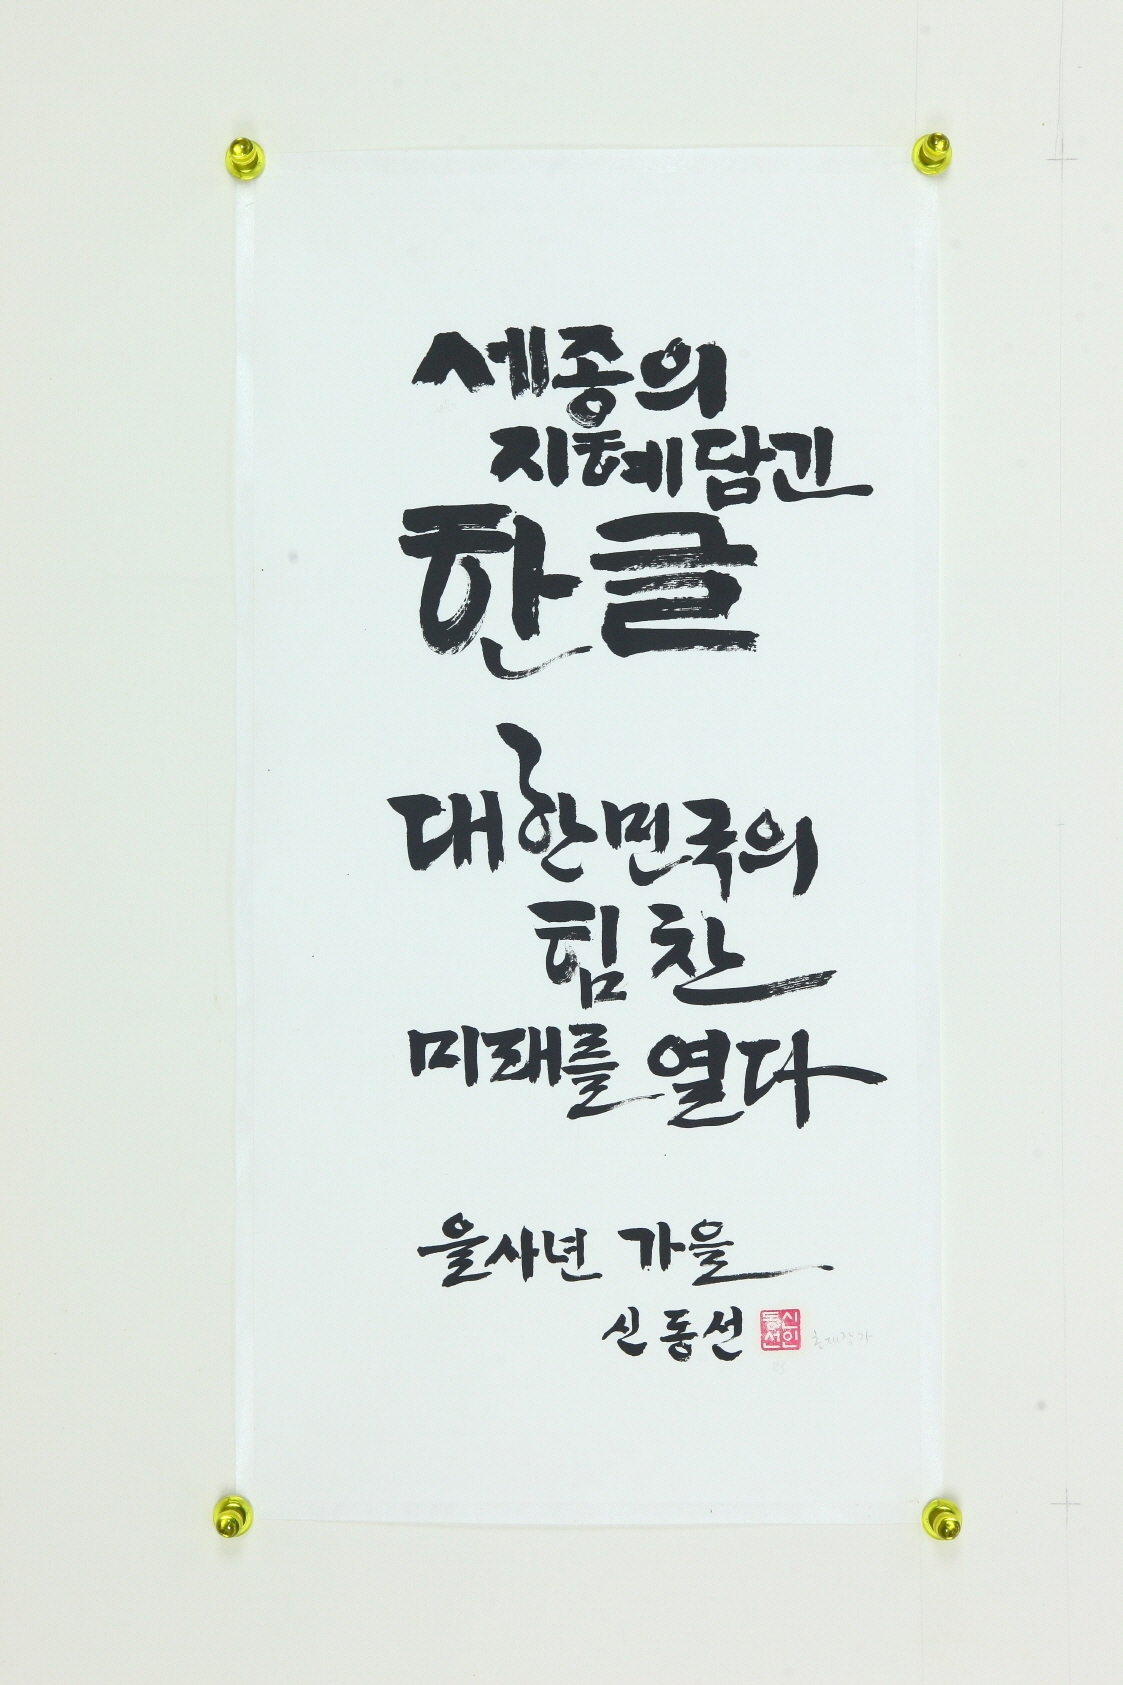 세종의
지혜 담긴
한글
대한민국의
힘찬
미래를 열다
을사년 가을
신동선